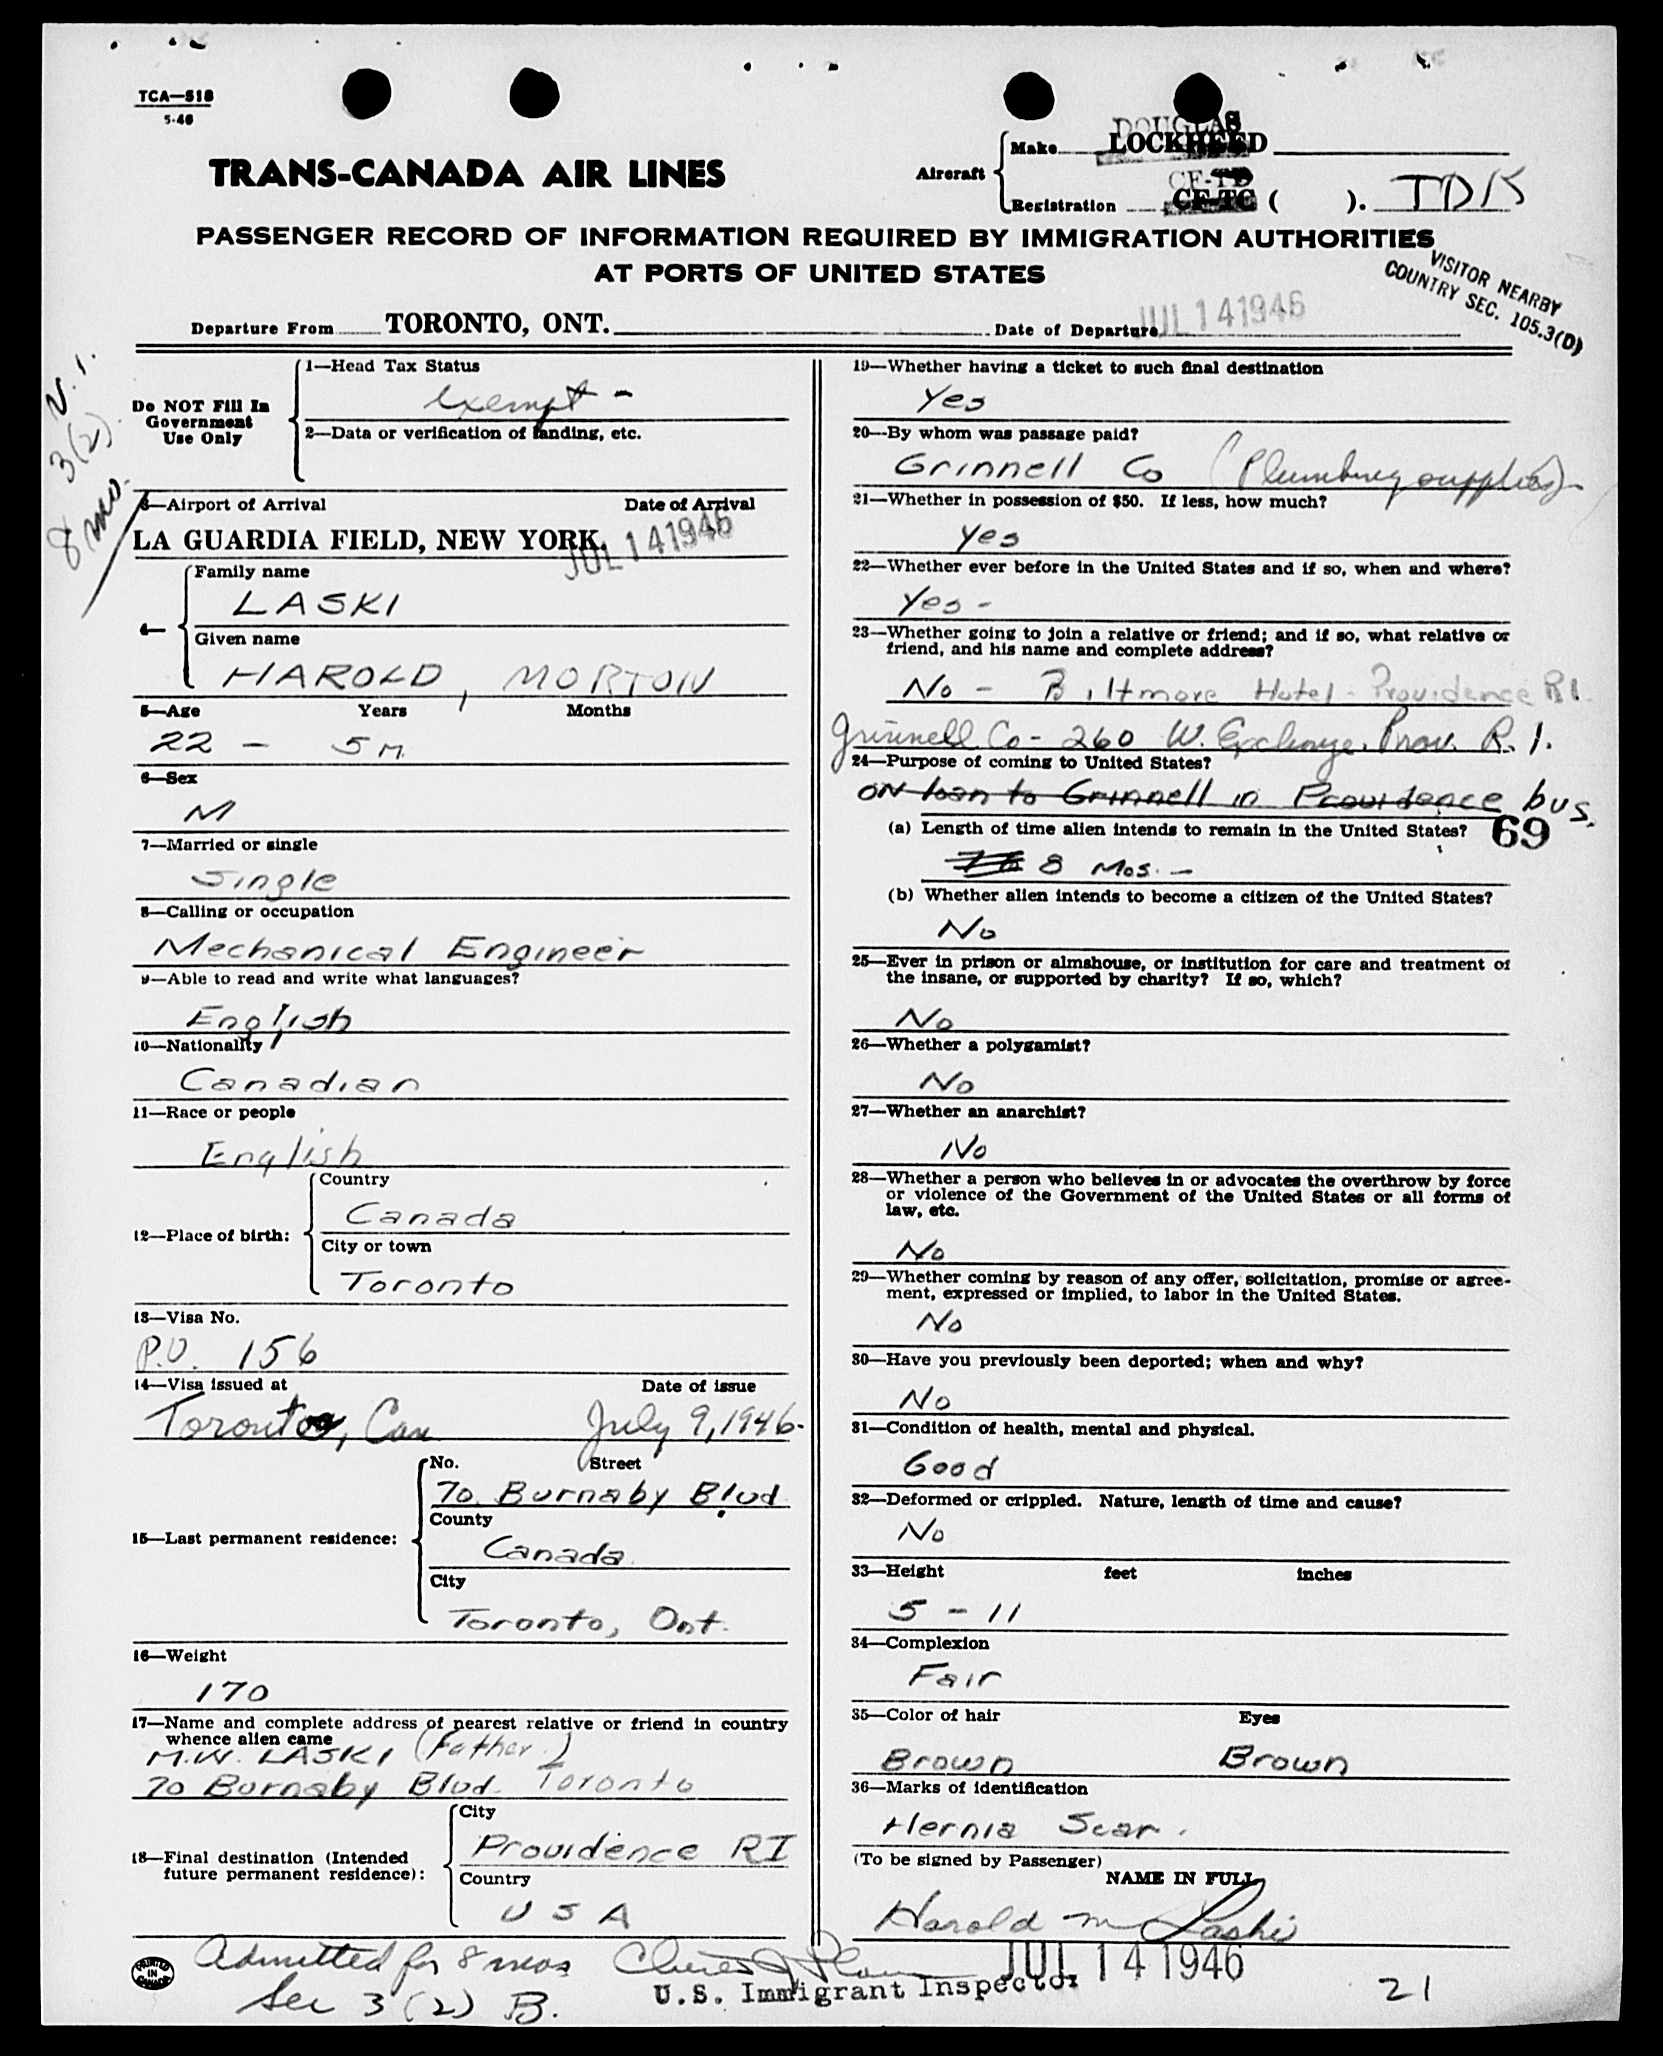 TCA—518
5-46
TRANS-CANADA AIR LINES
Aircraft
Make
DOUGLAS
LOCKHEED
Registration
CF-TD
CF-TC ( ). TDK
PASSENGER RECORD OF INFORMATION REQUIRED BY IMMIGRATION AUTHORITIES
AT PORTS OF UNITED STATES
VISITOR NEARBY
COUNTRY SEC. 105.3(D)
Departure From TORONTO, ONT. Date of Departure JUL 14 1946
V. 1.
3(2).
8 mo.
Do NOT Fill In
Government
Use Only
1—Head Tax Status
Exempt -
2—Data or verification of landing, etc.
3—Airport of Arrival Date of Arrival
LA GUARDIA FIELD, NEW YORK. JUL 14 1946
4—
Family name
LASKI
Given name
HAROLD, MORTON
5—Age Years Months
22 - 5 M
6—Sex
M
7—Married or single
Single
8—Calling or occupation
Mechanical Engineer
9—Able to read and write what languages?
English
10—Nationality
Canadian
11—Race or people
English
12—Place of birth:
Country
Canada
City or town
Toronto
13—Visa No.
P.V. 156
14—Visa issued at Date of issue
Toronto, Can July 9, 1946-
15—Last permanent residence:
No. Street
70 Burnaby Blvd.
County
Canada
City
Toronto, Ont.
16—Weight
170
17—Name and complete address of nearest relative or friend in country
whence alien came
M.W. LASKI (Father)
70 Burnaby Blvd. Toronto
18—Final destination (Intended
future permanent residence):
City
Providence RI
Country
USA
19—Whether having a ticket to such final destination
Yes
20—By whom was passage paid?
Grinnell Co (Plumbing supplies)
21—Whether in possession of $50. If less, how much?
Yes
22—Whether ever before in the United States and if so, when and where?
Yes -
23—Whether going to join a relative or friend; and if so, what relative or
friend, and his name and complete address?
No - Biltmore Hotel - Providence RI.
Grinnell Co - 260 W. Exchange. Prov. R. I.
24—Purpose of coming to United States?
ON loan to Grinnell in Providence bus.
(a) Length of time alien intends to remain in the United States? 69
8 Mos. -
(b) Whether alien intends to become a citizen of the United States?
No
25—Ever in prison or almshouse, or institution for care and treatment of
the insane, or supported by charity? If so, which?
No
26—Whether a polygamist?
No
27—Whether an anarchist?
No
28—Whether a person who believes in or advocates the overthrow by force
or violence of the Government of the United States or all forms of
law, etc.
No
29—Whether coming by reason of any offer, solicitation, promise or agree-
ment, expressed or implied, to labor in the United States.
No
30—Have you previously been deported; when and why?
No
31—Condition of health, mental and physical.
Good
32—Deformed or crippled. Nature, length of time and cause?
No
33—Height feet inches
5 - 11
34—Complexion
Fair
35—Color of hair Eyes
Brown Brown
36—Marks of identification
Hernia Scar.
(To be signed by Passenger)
NAME IN FULL
Harold M Laski
PRINTED IN CANADA
Admitted for 8 mos
Sec 3(2) B.
U.S. Immigrant Inspector
JUL 14 1946
21